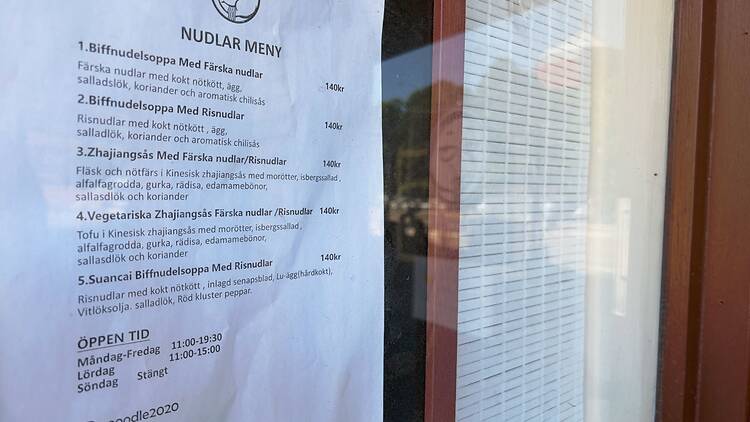 NUDLAR MENY
1.Biffnudelsoppa Med Färska nudlar 140kr
Färska nudlar med kokt nötkött, ägg,
salladslök, koriander och aromatisk chilisås
2.Biffnudelsoppa Med Risnudlar 140kr
Risnudlar med kokt nötkött , ägg,
salladlök, koriander och aromatisk chilisås
3.Zhajiangsås Med Färska nudlar/Risnudlar 140kr
Fläsk och nötfärs i Kinesisk zhajiangsås med morötter, isbergssallad ,
alfalfagrodda, gurka, rädisa, edamamebönor,
sallasdlök och koriander
4.Vegetariska Zhajiangsås Färska nudlar /Risnudlar 140kr
Tofu i Kinesisk zhajiangsås med morötter, isbergssallad ,
alfalfagrodda, gurka, rädisa, edamamebönor,
sallasdlök och koriander
5.Suancai Biffnudelsoppa Med Risnudlar 140kr
Risnudlar med kokt nötkött , inlagd senapsblad, Lu-ägg(hårdkokt),
Vitlöksolja. salladlök, Röd kluster peppar.
ÖPPEN TID
Måndag-Fredag 11:00-19:30
Lördag 11:00-15:00
Söndag Stängt
noodle2020